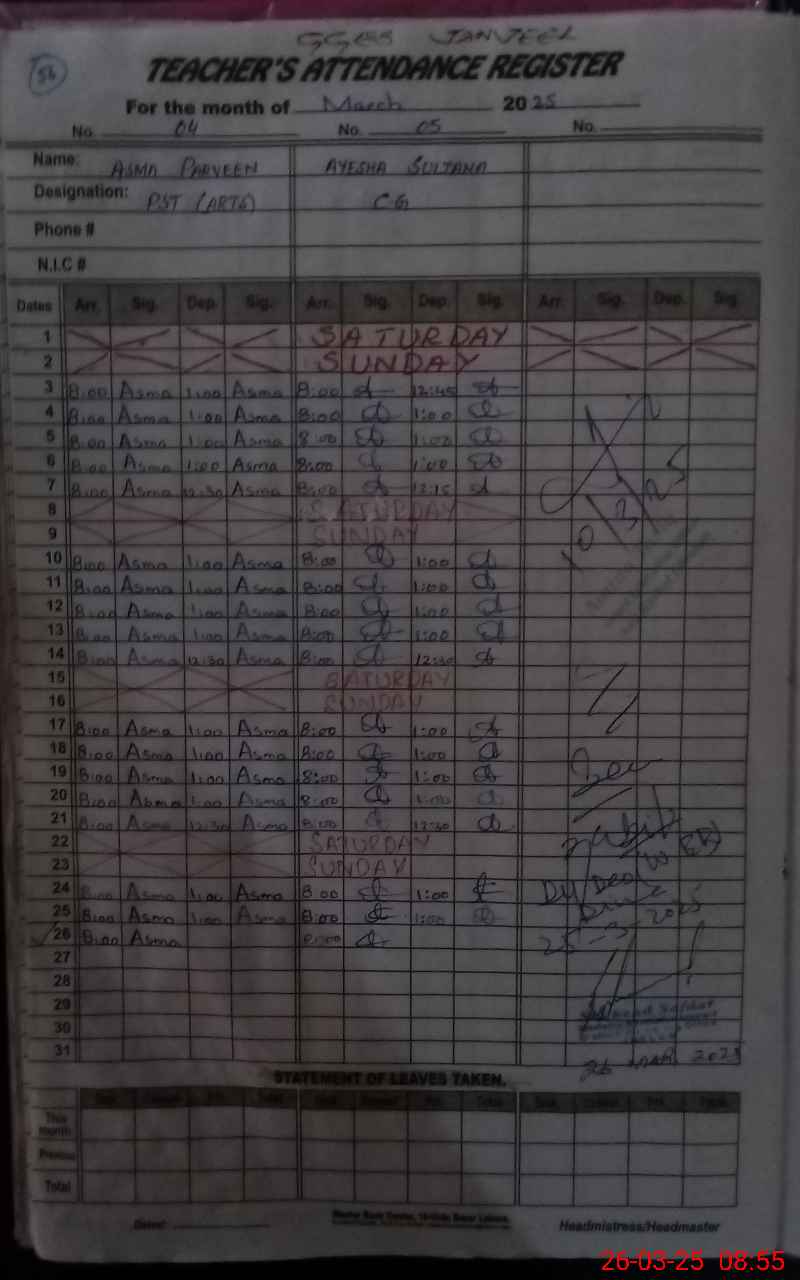 GGES JANJEEL
56
TEACHER'S ATTENDANCE REGISTER
For the month of March 2025
No. 04 No. 05 No.
Name: ASMA PARVEEN AYESHA SULTANA
Designation: PST (ARTS) CG
Phone #
N.I.C #
Dates Arr. Sig. Dep. Sig. Arr. Sig. Dep. Sig. Arr. Sig. Dep. Sig.
1 SATURDAY
2 SUNDAY
3 8:00 Asma 1:00 Asma 8:00 12:45
4 8:00 Asma 1:00 Asma 8:00 1:00
5 8:00 Asma 1:00 Asma 8:00 1:00
6 8:00 Asma 1:00 Asma 8:00 1:00
7 8:00 Asma 12:30 Asma 8:00 12:15
8 SATURDAY
9 SUNDAY
10/3/25
10 8:00 Asma 1:00 Asma 8:00 1:00
11 8:00 Asma 1:00 Asma 8:00 1:00
12 8:00 Asma 1:00 Asma 8:00 1:00
13 8:00 Asma 1:00 Asma 8:00 1:00
14 8:00 Asma 12:30 Asma 8:00 12:30
15 SATURDAY
16 SUNDAY
17 8:00 Asma 1:00 Asma 8:00 1:00
18 8:00 Asma 1:00 Asma 8:00 1:00
19 8:00 Asma 1:00 Asma 8:00 1:00
20 8:00 Asma 1:00 Asma 8:00 1:00
21 8:00 Asma 12:30 Asma 8:00 12:30
22 SATURDAY
23 SUNDAY
24 8:00 Asma 1:00 Asma 8:00 1:00
25 8:00 Asma 1:00 Asma 8:00 1:00
25-3-2025
26 8:00 Asma 8:00
27
28
29
30
31
26 MAR 2025
STATEMENT OF LEAVES TAKEN.
This month
Previous
Total
Headmistress/Headmaster
26-03-25 08:55